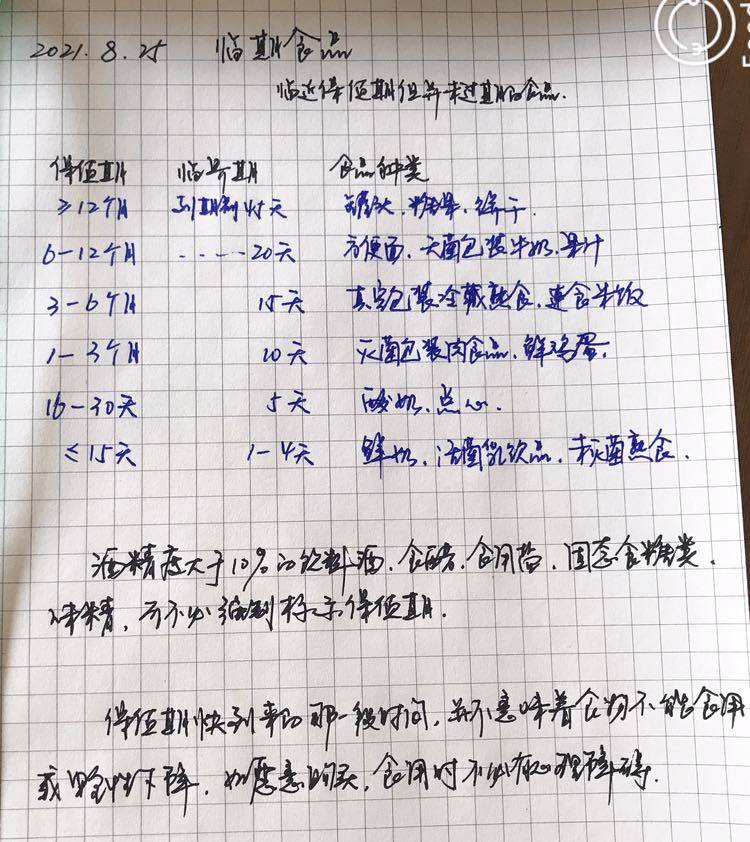 2021.8.25 临期食品
临近保值期但并未过期的食品.
保值期 临界期 食品种类
≥12个月 到期前45天 罐头、糖果、饼干.
6-12个月 .....20天 方便面、灭菌包装牛奶、果汁
3-6个月 15天 真空包装冷藏熟食、速食米饭
1-3个月 10天 灭菌包装肉食品、鲜鸡蛋.
16-30天 5天 酸奶、点心.
≤15天 1-4天 鲜奶、活菌乳饮品、未灭菌熟食.
酒精度大于10%的饮料酒、食醋、食用盐、固态食糖类、
味精, 可不必标示保值期.
保值期快到来的那一段时间, 并不意味着食物不能食用
或安全性下降, 如愿意购买, 食用时不必有心理障碍.